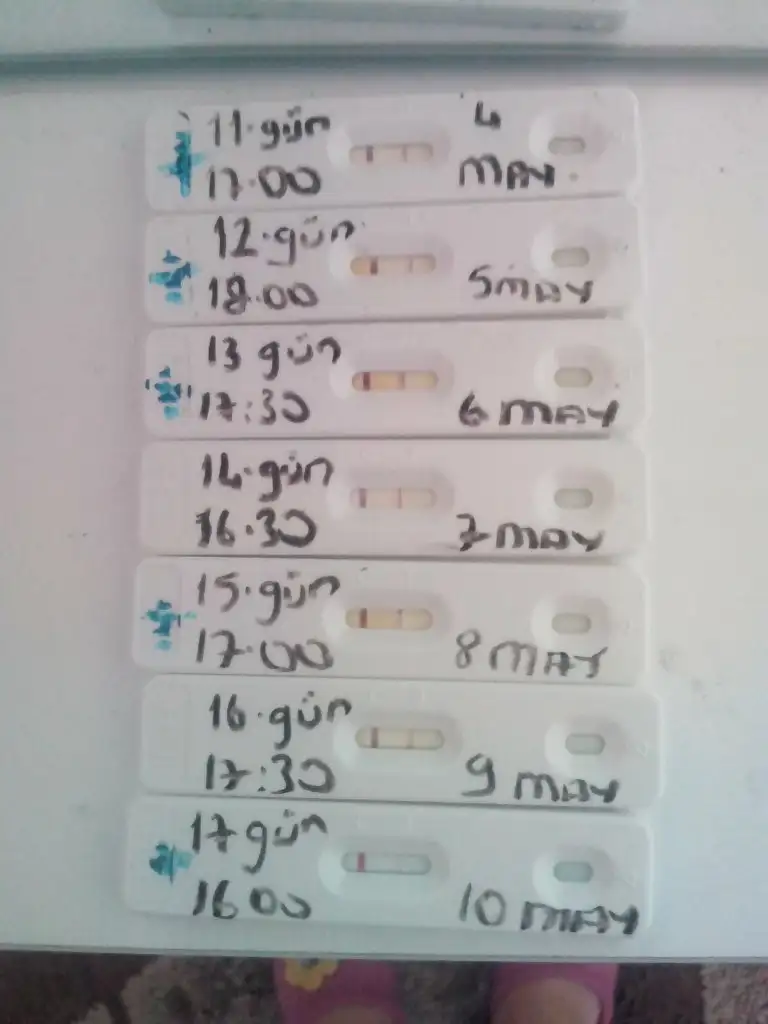 11.gün
17.00
4
MAY.
12.gün
18.00
5MAY
13 gün
17:30
6 MAY
14.gün
16.30
7 MAY
15.gün
17.00
8 MAY
16.gün
17:30
9 MAY
17 gün
16 00
10 MAY